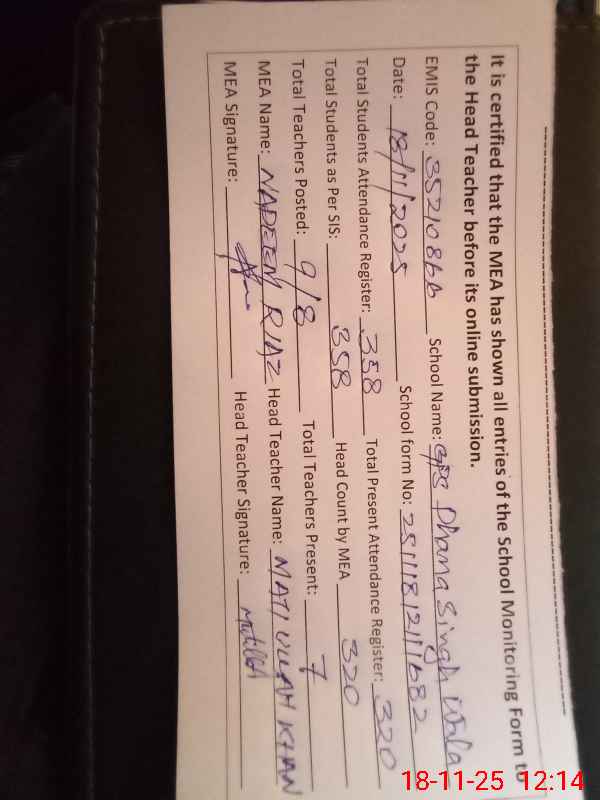 It is certified that the MEA has shown all entries of the School Monitoring Form to
the Head Teacher before its online submission.
EMIS Code: 35210866 School Name: GPS Dhana Singh Wala
Date: 18/11/2025 School form No: 251118121111682
Total Students Attendance Register: 358 Total Present Attendance Register: 320
Total Students as Per SIS: 358 Head Count by MEA 320
Total Teachers Posted: 9/8 Total Teachers Present: 7
MEA Name: NADEEM RIAZ Head Teacher Name: MATI ULLAH KHAN
MEA Signature: Head Teacher Signature:
18-11-25 12:14